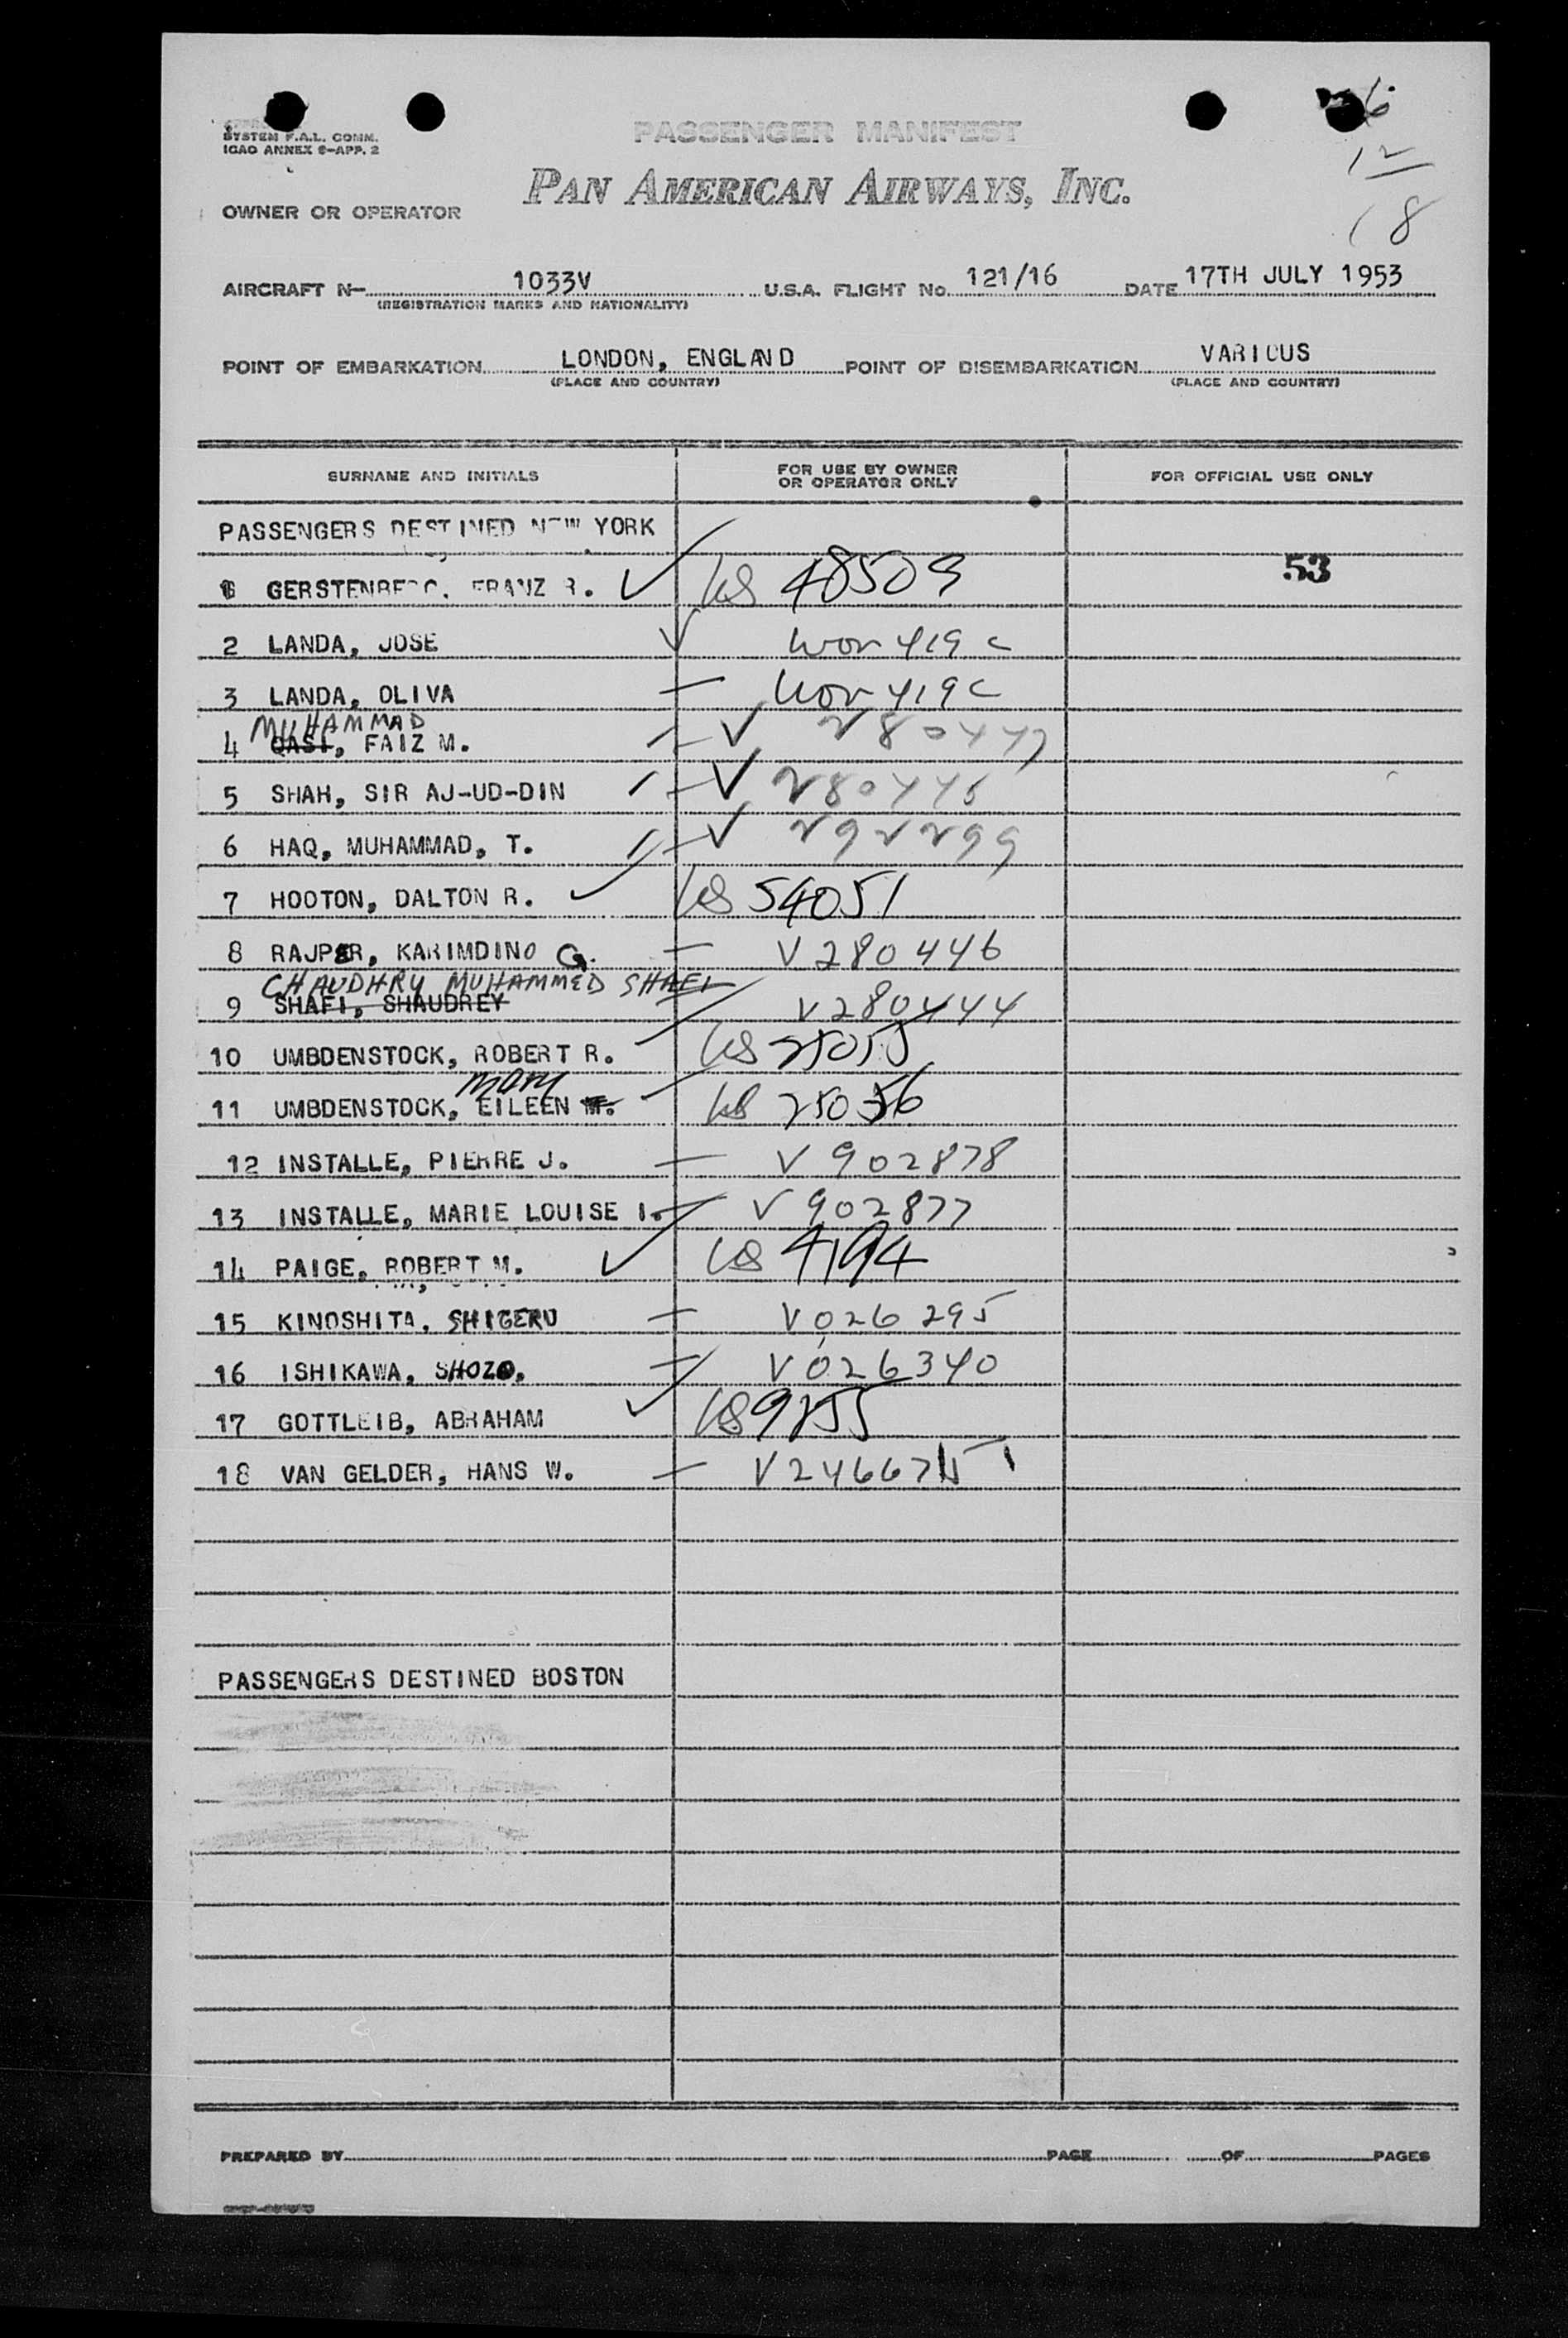 SYSTEM F.A.L. COMM.
ICAO ANNEX 9-APP. 2
PASSENGER MANIFEST
6
12
18
PAN AMERICAN AIRWAYS, INC.
OWNER OR OPERATOR
AIRCRAFT N- 1033V U.S.A. FLIGHT No. 121/16 DATE 17TH JULY 1953
(REGISTRATION MARKS AND NATIONALITY)
POINT OF EMBARKATION LONDON, ENGLAND POINT OF DISEMBARKATION VARIOUS
(PLACE AND COUNTRY) (PLACE AND COUNTRY)
SURNAME AND INITIALS FOR USE BY OWNER OR OPERATOR ONLY FOR OFFICIAL USE ONLY
PASSENGERS DESTINED NEW YORK
1 GERSTENBERG, FRANZ R. ✓ US 48509 53
2 LANDA, JOSE ✓ 419 c
3 LANDA, OLIVA — 419 c
MUHAMMAD
4 QASI, FAIZ M. ✓ V 280447
5 SHAH, SIR AJ-UD-DIN ✓ V 280445
6 HAQ, MUHAMMAD, T. ✓ V 292299
7 HOOTON, DALTON R. ✓ US 54051
8 RAJPER, KARIMDINO G. — V 280446
CHAUDHRY MUHAMMED SHAFI
9 SHAFI, SHAUDREY V 280444
10 UMBDENSTOCK, ROBERT R. US 25055
mary
11 UMBDENSTOCK, EILEEN M. US 25056
12 INSTALLE, PIERRE J. — V 902878
13 INSTALLE, MARIE LOUISE I. V 902877
14 PAIGE, ROBERT M. ✓ US 4194
15 KINOSHITA, SHIGERU — V 026295
16 ISHIKAWA, SHOZO, — V 026340
17 GOTTLEIB, ABRAHAM ✓ US 9255
18 VAN GELDER, HANS W. — V 246675
PASSENGERS DESTINED BOSTON
PREPARED BY PAGE OF PAGES